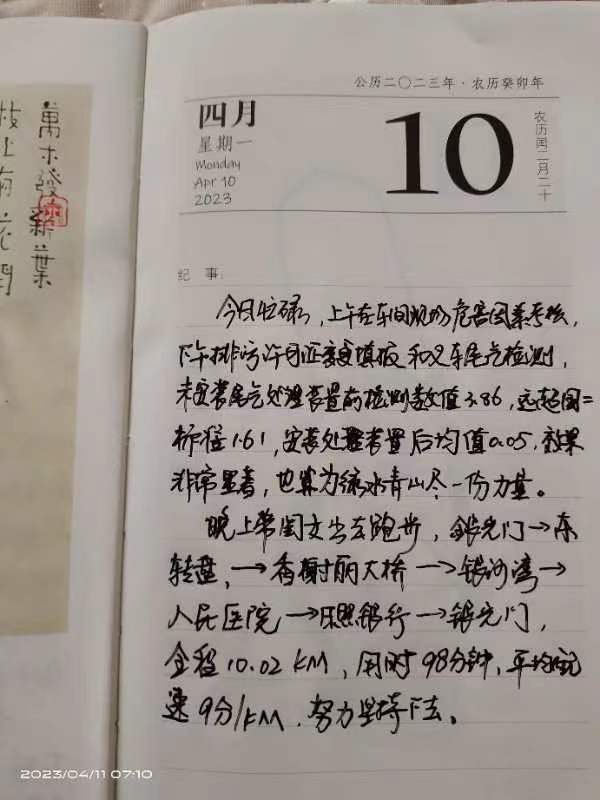 萬木發新葉
枝上有花開
公历二〇二三年·农历癸卯年
四月
星期一
Monday
Apr 10
2023
10
农历闰二月二十
纪 事:
今日忙碌,上午在车间现场危害因素考核,
下午排污许可证变更填报和叉车尾气检测,
未安装尾气处理装置前检测数值3.86,远超国二
标准1.61,安装处理装置后均值0.05,效果
非常显著,也算为绿水青山尽一份力量。
晚上常国文出去跑步,银光门→东
转盘,→香榭丽大桥→银河湾→
人民医院→日照银行→银光门,
全程10.02KM,用时98分钟,平均配
速9分/KM.努力坚持下去。
2023/04/11 07:10